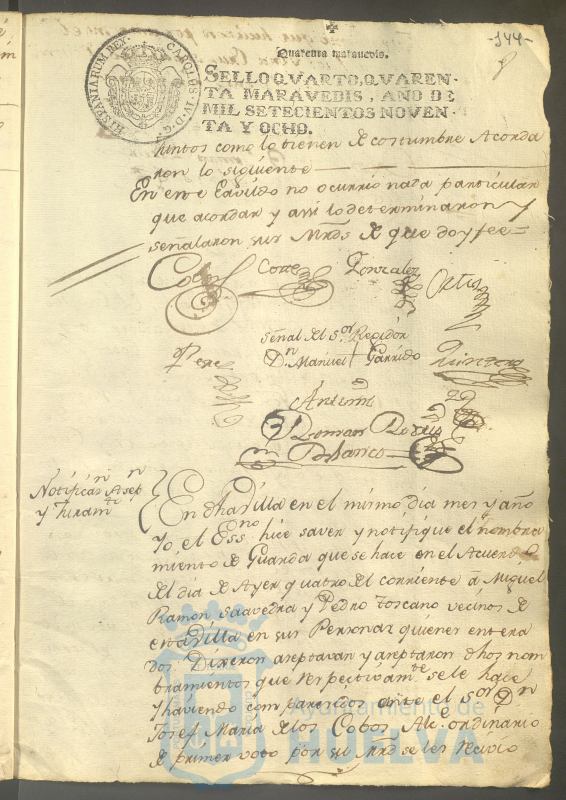 -144-
Quarenta marauedis.
HISPANIARUM REX. CAROLUS IV D. G.
SELLO QVARTO, QVAREN-
TA MARAVEDIS, AÑO DE
MIL SETECIENTOS NOVEN-
TA Y OCHO.
Juntos como lo tienen de costumbre Acorda
ron lo siguiente
En este Cavildo no ocurrio nada particular
que acordar y assi lo determinaron y
señalaron sus Mrds de que doy fee=
Cobos Corte Gonzalez Ortis
Señal del Sor Regidor
Perez Dn Manuel + Garrido Quintero
Ante mi
Roman
Blanco
Notificn Aceptn
y Juramto
En dha Villa en el mismo dia mes y año
Yo, el Essno hice saver y notifiqué el nombra
miento de Guarda que se hace en el Acuerdo
del dia de Ayer quatro del corriente á Miguel
Ramon Saavedra y Pedro Toscano vecinos de
esta Villa en sus Personas quienes entera
dos Dixeron aseptavan y aseptaron dhos nom
bramientos que respectivamte se les hace
y haviendo comparesidos ante el Sor Dn
Josef Maria de los Cobos Alce ordinario
de primer voto por su Mrd se les recivio
Ayuntamiento de
HUELVA